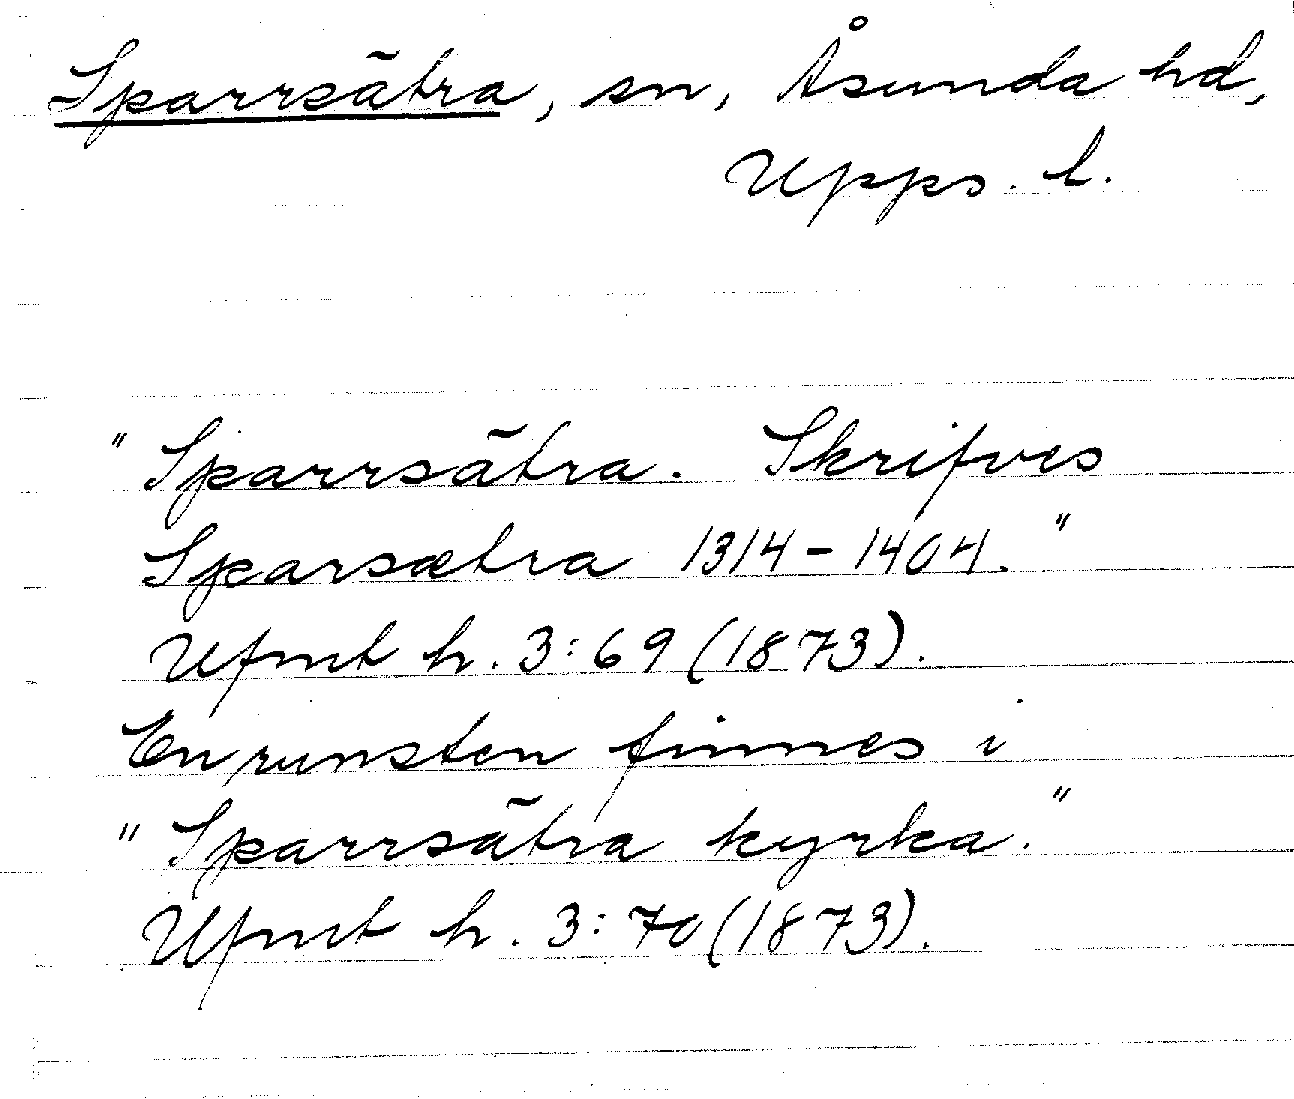 Sparrsätra, sn, Åsunda hd,
Upps. l.
"Sparrsätra. Skrifves
Sparsætra 1314-1404."
Ufmt h. 3:69 (1873).
En runsten finnes i
"Sparrsätra kyrka."
Ufmt h. 3:70 (1873).